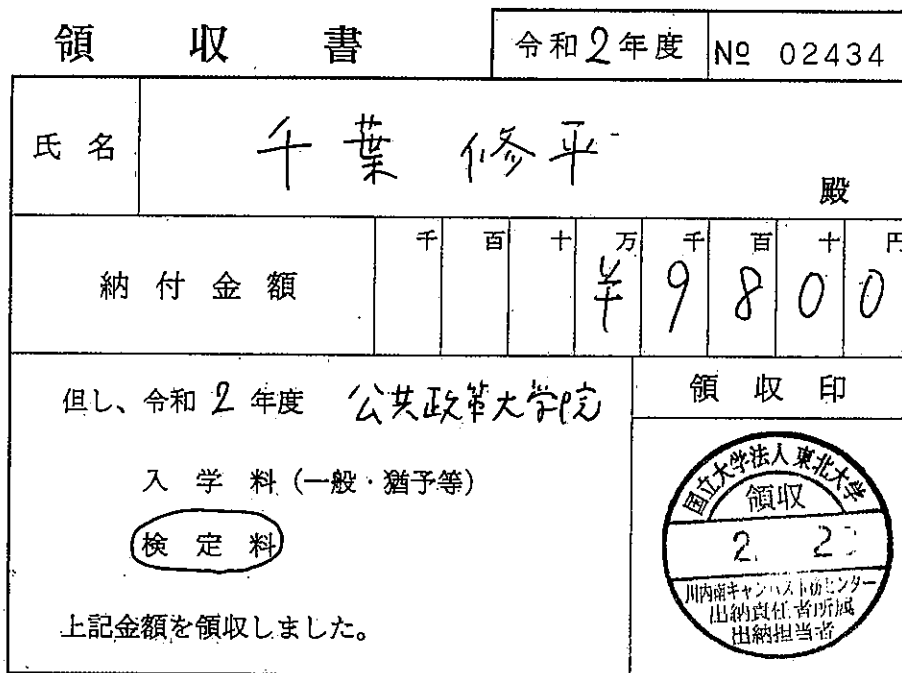 領収書
令和2年度 № 02434
氏名 千葉 修平 殿
千 百 十 万 千 百 十 円
納付金額 ¥ 9 8 0 0
但し、令和2年度 公共政策大学院
領収印
入学料（一般・猶予等）
検定料
上記金額を領収しました。
国立大学法人東北大学
領収
2. 2
川内南キャンパス センター
出納責任者所属
出納担当者